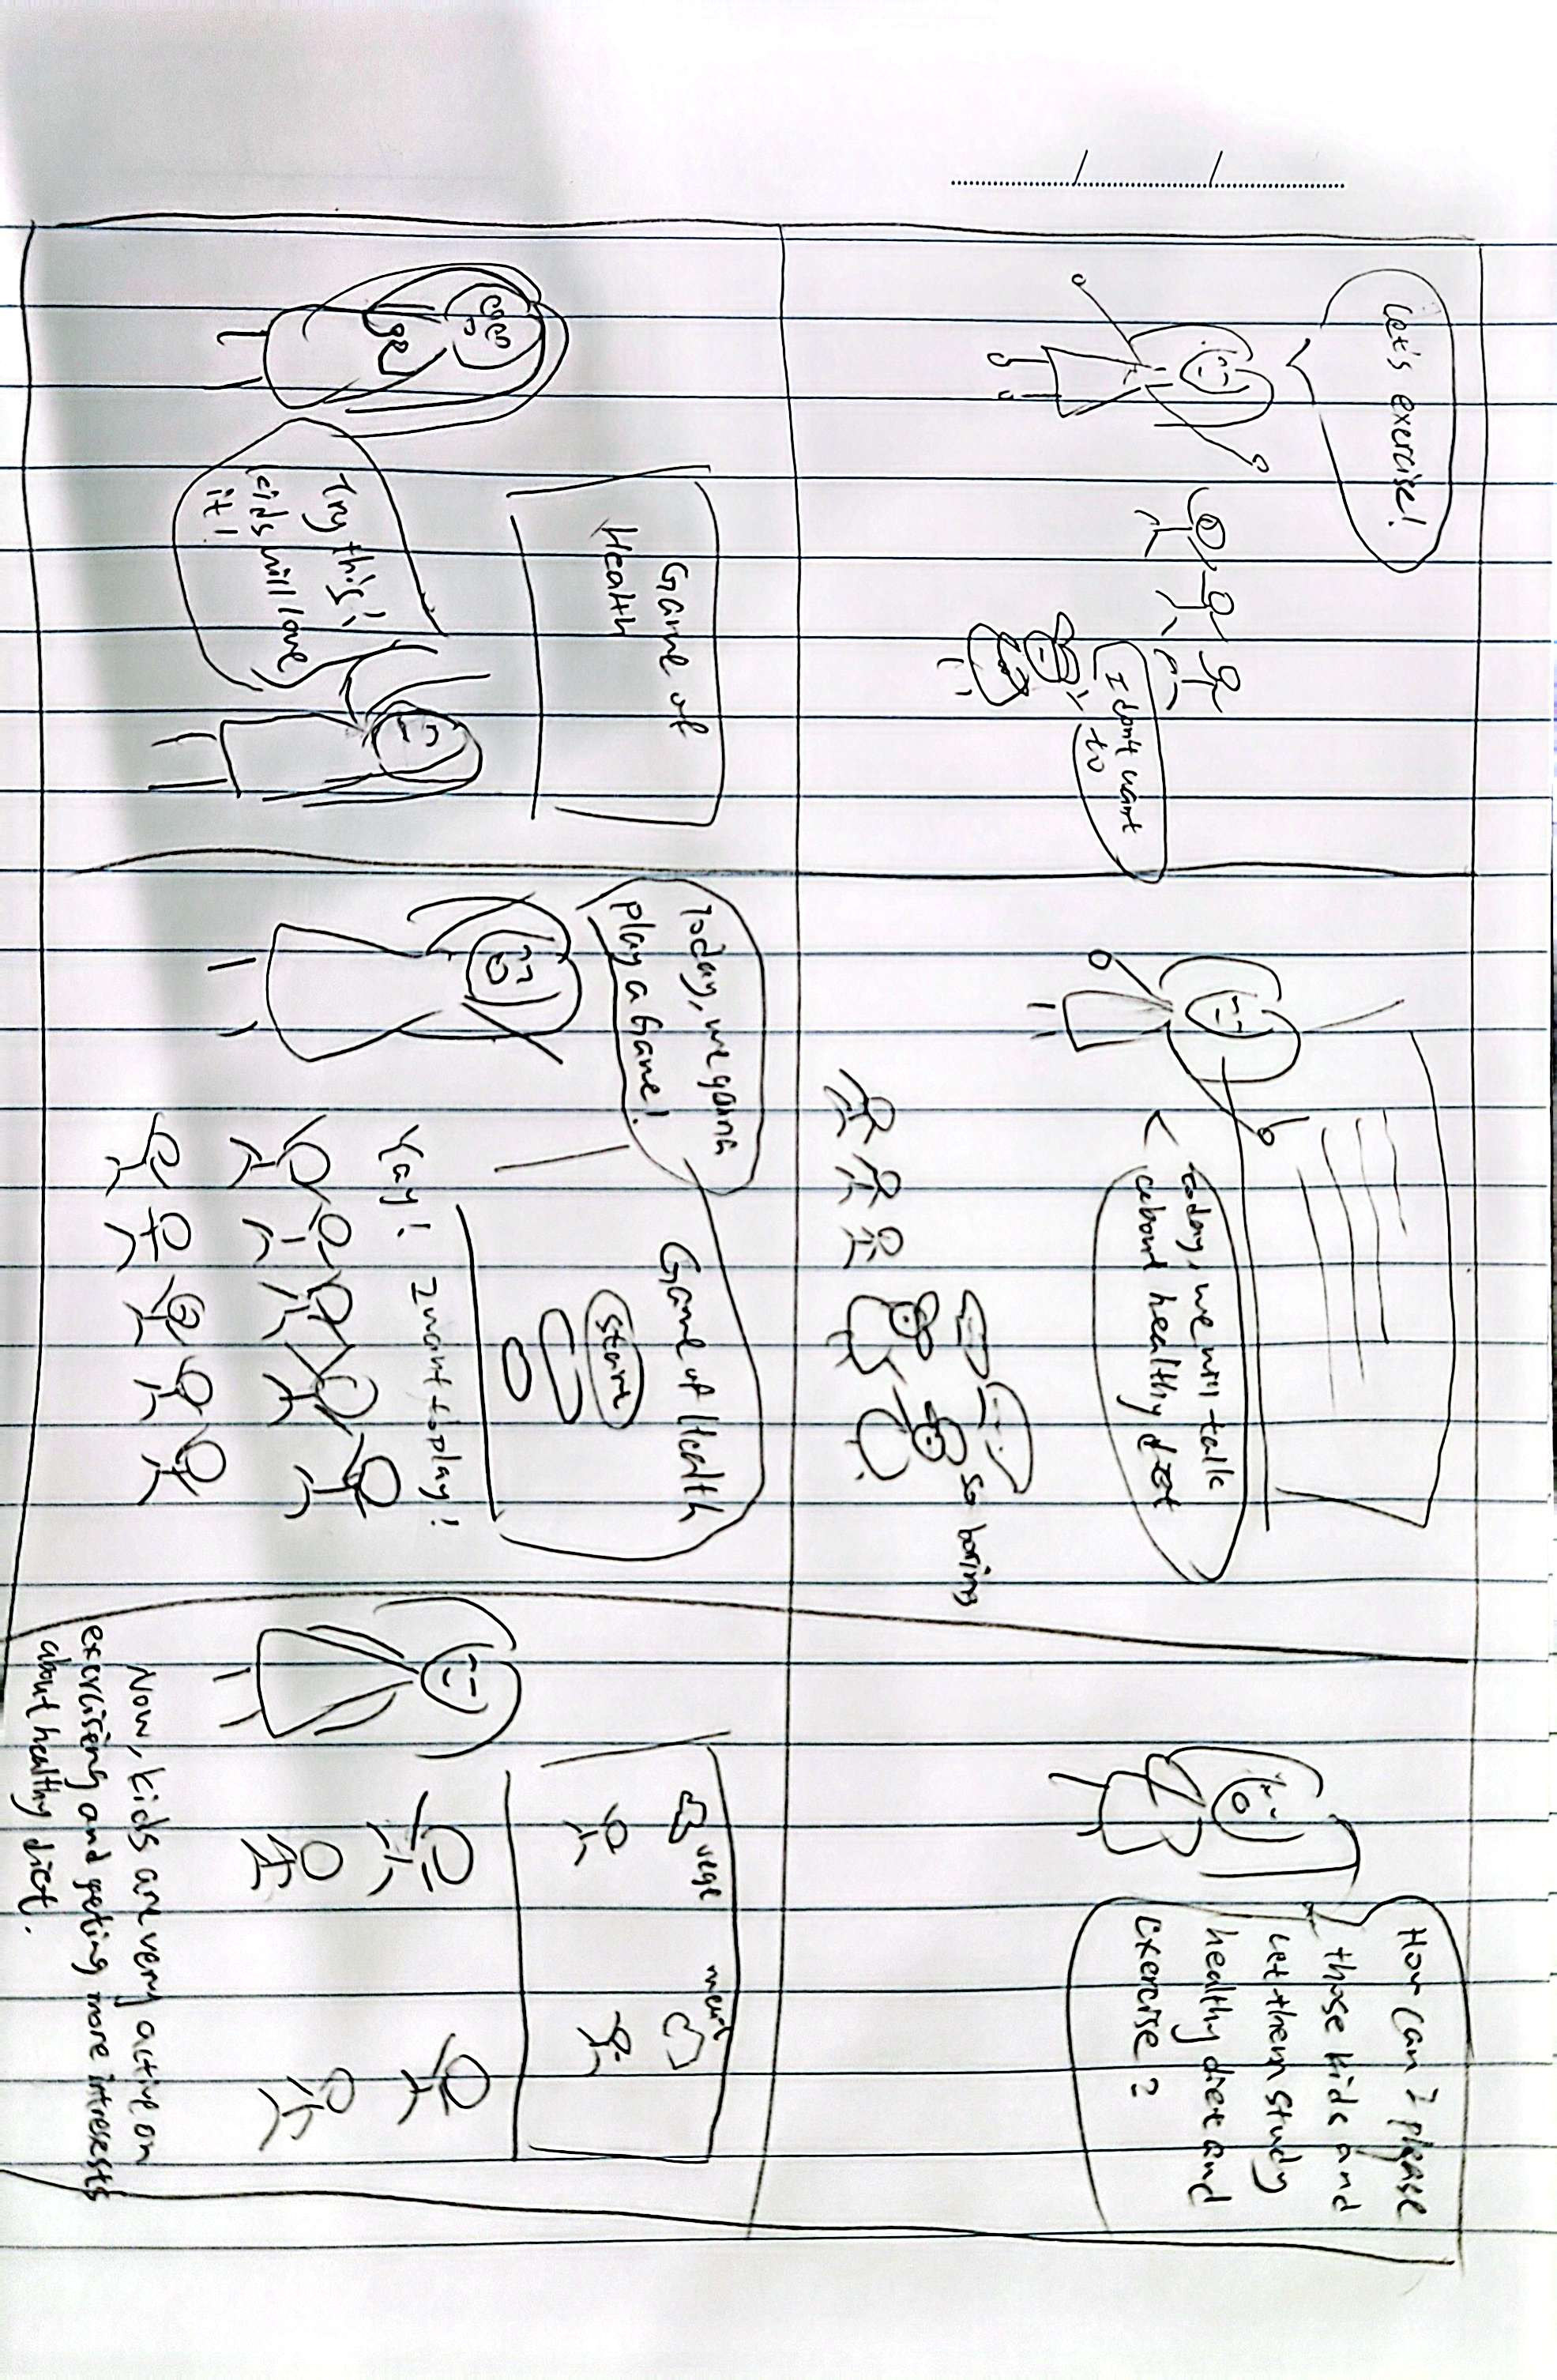 Let's exercise!
I don't want
to
today, we will talk
about healthy diet
so boring
How can I please
those kids and
let them study
healthy diet and
exercise?
Game of
Health
Try this!
kids will love
it!
Today, we gonna
play a Game!
Game of Health
start
Yay! I want to play!
vege meat
Now, kids are very active on
exercising and geting more intresests
about healthy diet.